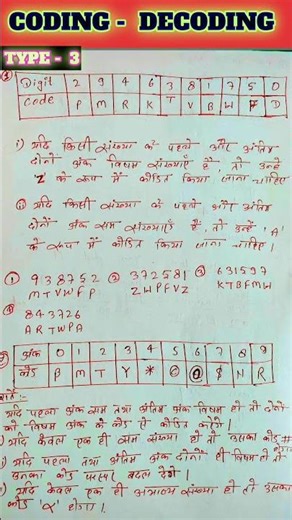 CODING - DECODING
TYPE - 3
Digit 2 9 4 6 3 8 1 7 5 0
Code P M R K T V B W F D
i) यदि किसी संख्या के पहले और अंतिम
दोनों अंक विषम संख्याएँ है, तो उन्हें
'Z' के रूप में कोडित किया जाना चाहिए
ii) यदि किसी संख्या के पहले और अंतिम
दोनों अंक सम संख्याएँ हैं, तो उन्हें 'A'
के रूप में कोडित किया जाना चाहिए।
① 938752 ② 372581 ③ 631597
MTVWFP ZWPFVZ KTBFMW
④ 843726
ARTWPA
अंक 0 1 2 3 4 5 6 7 8 9
कोड B M T Y * © @ $ N R
यदि पहला अंक सम तथा अंतिम अंक विषम हो तो दोनों
को विषम अंक के कोड से कोडित करेंगे।
यदि केवल एक ही सम संख्या हो तो उसका कोड #
यदि पहला तथा अंतिम अंक दोनों ही विषम हो तो
उनका कोड परस्पर बदल देंगे
यदि केवल एक ही अभाज्य संख्या हो तो उसका
कोड 'α' होगा।